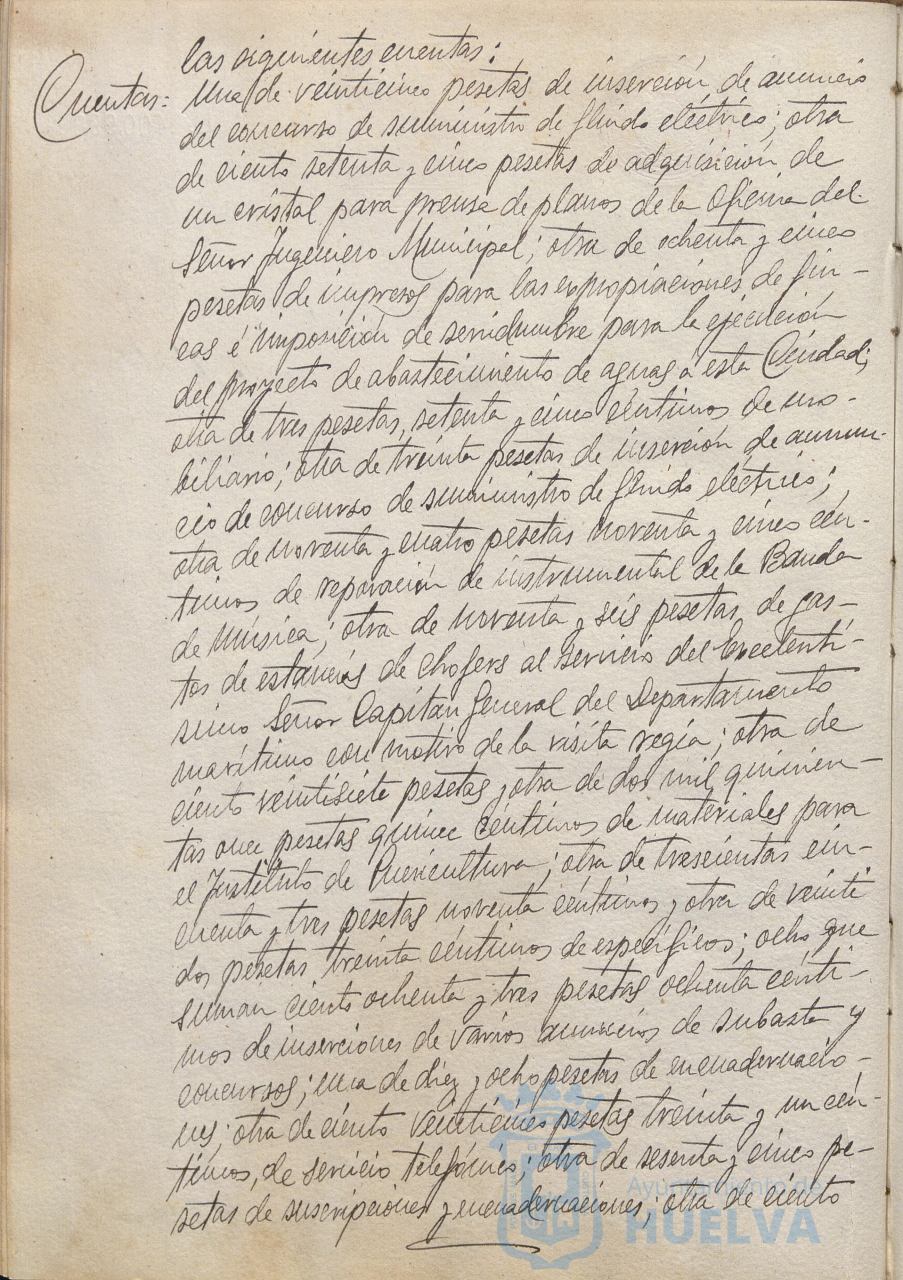 las siguientes cuentas:
Cuentas: Una de veinticinco pesetas de inserción de anuncio
del concurso de suministro de flúido eléctrico; otra
de ciento setenta y cinco pesetas de adquisición de
un cristal para prensa de planos de la Oficina del
Señor Ingeniero Municipal; otra de ochenta y cinco
pesetas de impresos para las expropiaciones de fin-
cas é imposición de servidumbre para la ejecución
del proyecto de abastecimiento de aguas a esta Ciudad;
otra de tres pesetas, setenta y cinco céntimos de mo-
biliario; otra de treinta pesetas de inserción de anun-
cio de concurso de suministro de flúido eléctrico;
otra de noventa y cuatro pesetas noventa y cinco cén-
timos de reparación de instrumental de la Banda
de Música; otra de noventa y seis pesetas de gas-
tos de estancias de chofers al servicio del Excelentí-
simo Señor Capitán General del Departamento
marítimo con motivo de la visita regia; otra de
ciento veintisiete pesetas y otra de dos mil quinien-
tas once pesetas quince céntimos de materiales para
el Instituto de Puericultura; otra de trescientas cin-
cuenta y tres pesetas noventa céntimos y otra de veinti
dos pesetas treinta céntimos de específicos; ocho que
suman ciento ochenta y tres pesetas ochenta cénti-
mos de inserciones de varios anuncios de subasta y
concursos; una de diez y ocho pesetas de encuadernacio-
nes; otra de ciento veinticinco pesetas treinta y un cén-
timos, de servicio telefónico; otra de sesenta y cinco pe-
setas de suscripciones y encuadernaciones; otra de ciento
Ayuntamiento de
HUELVA